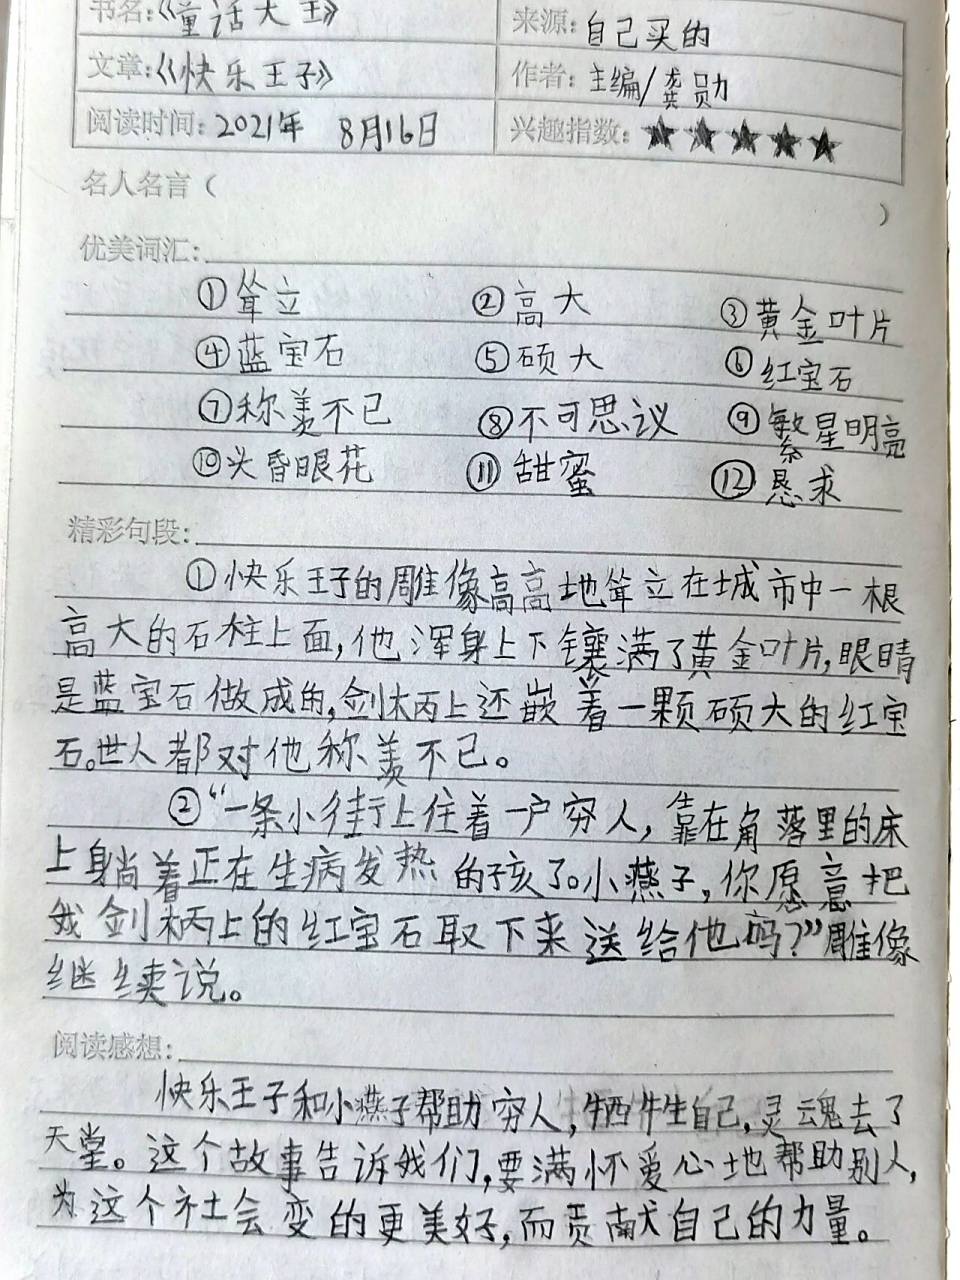 书名:《童话大王》 来源: 自己买的
文章:《快乐王子》 作者: 主编/龚勋
阅读时间: 2021年 8月16日 兴趣指数: ★★★★★
名人名言( )
优美词汇:
①耸立 ②高大 ③黄金叶片
④蓝宝石 ⑤硕大 ⑥红宝石
⑦称羡不已 ⑧不可思议 ⑨繁星明亮
⑩头昏眼花 ⑪甜蜜 ⑫恳求
精彩句段:
①快乐王子的雕像高高地耸立在城市中一根
高大的石柱上面,他浑身上下镶满了黄金叶片,眼睛
是蓝宝石做成的,剑柄上还嵌着一颗硕大的红宝
石。世人都对他称羡不已。
②“一条小街上住着一户穷人,靠在角落里的床
上躺着正在生病发热的孩子。小燕子,你愿意把
我剑柄上的红宝石取下来送给他吗?”雕像
继续说。
阅读感想:
快乐王子和小燕子帮助穷人,牺牲自己,灵魂去了
天堂。这个故事告诉我们,要满怀爱心地帮助别人,
为这个社会变的更美好,而贡献自己的力量。